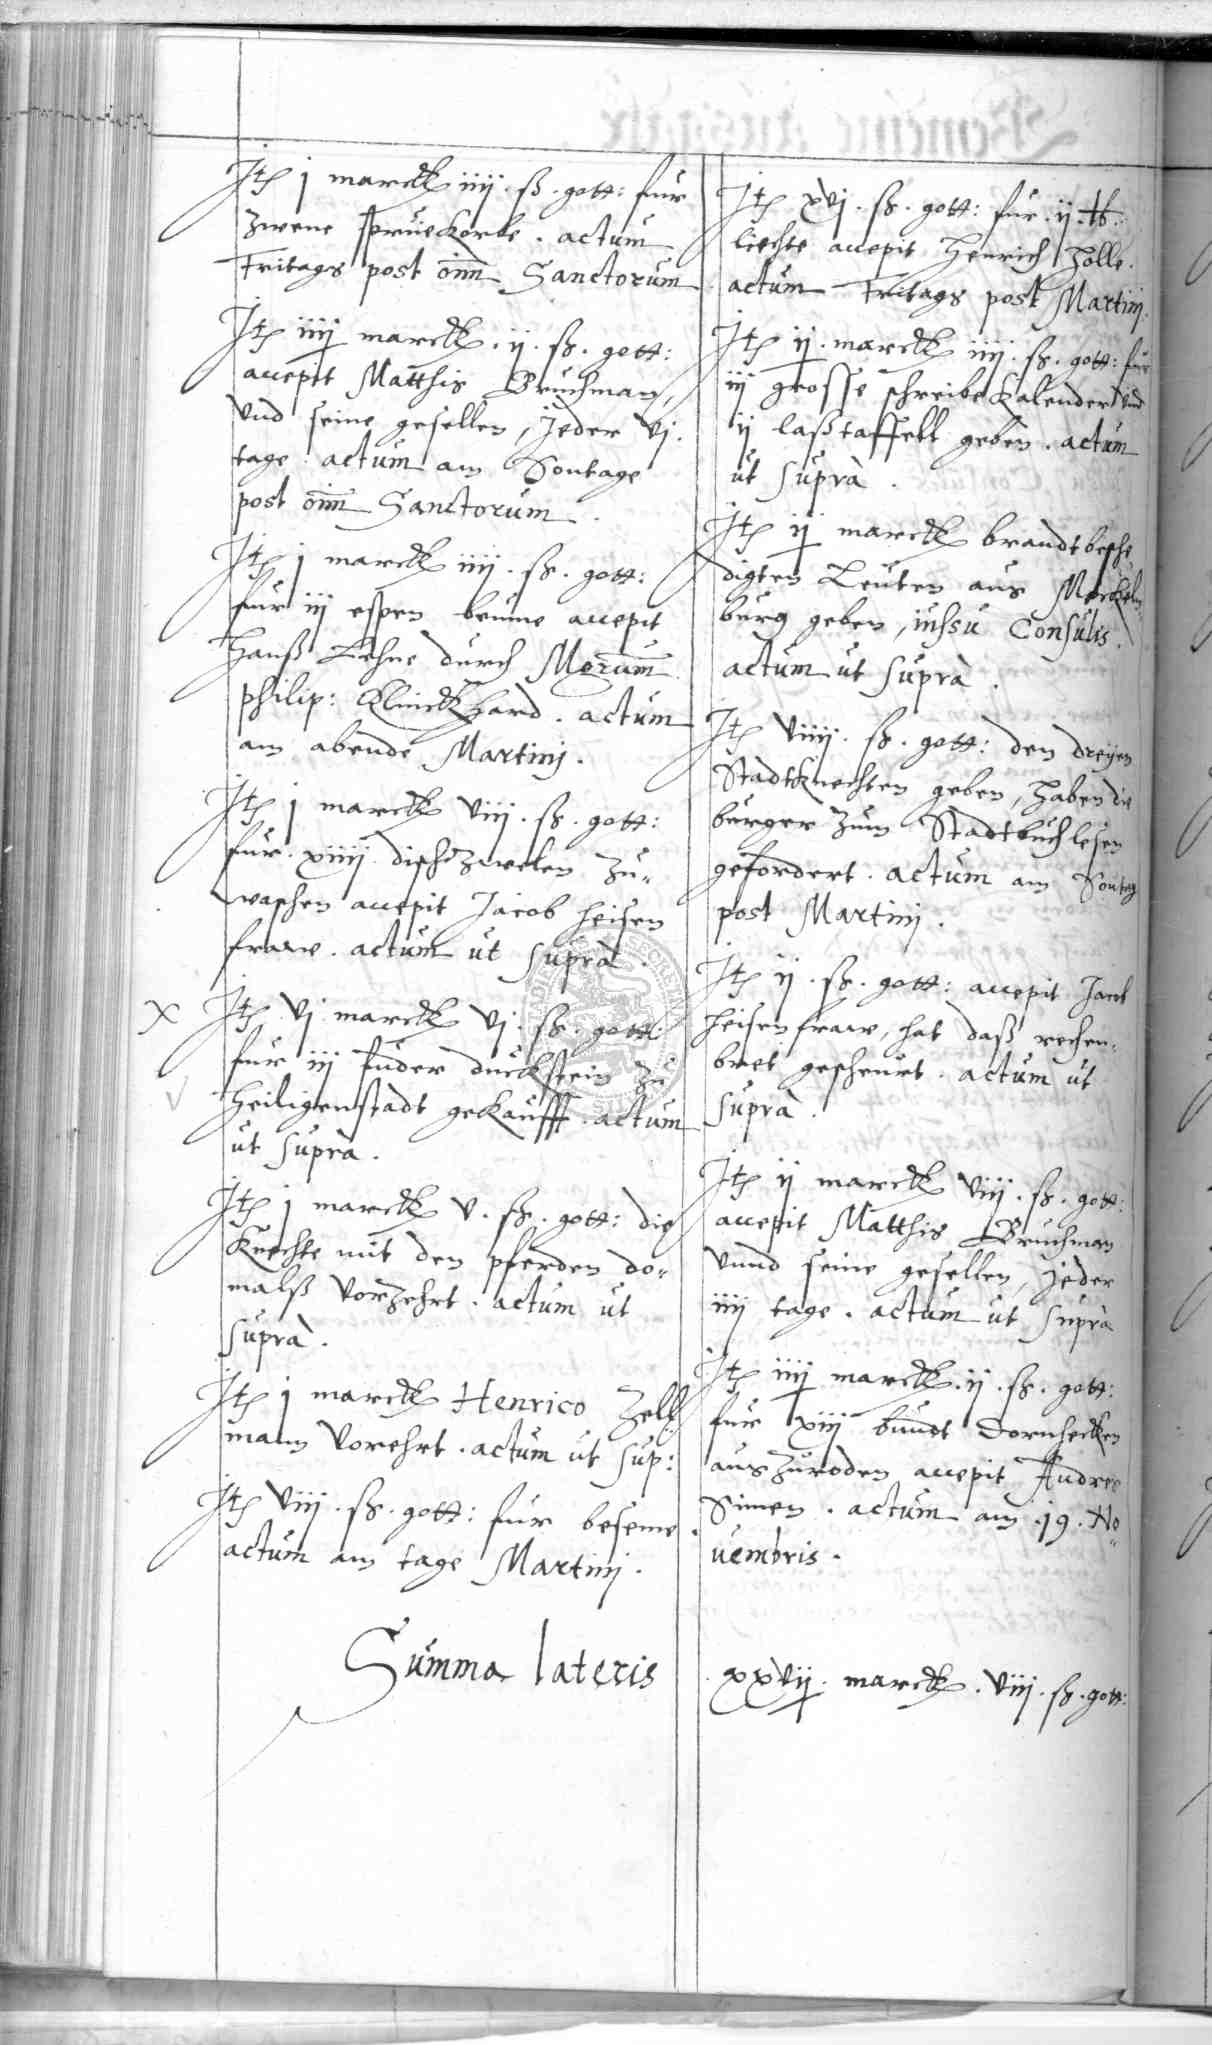 Itē j marck iiij . ß . gott: fur
zwene sprüekorbe . actum
Fritags post oīm Sanctorum
Itē iiij marck . ij . ß . gott:
accepit Matthis Bruchman,
vnd seine gesellen, Jeder vj.
tage . actum am Sontage
post oīm Sanctorum .
Itē j marck iiij . ß . gott:
fur iij espen beume accepit
Hanß Lehne durch
philip: Klinckhard . actum
am abende Martinj .
Itē j marck viij . ß . gott:
fur . xiiij dischzwelen zu„
waschen accepit Jacob heisen
fraw . actum ut suprà .
Itē vj marck vj . ß . gott:
fur iij fuder duckstein zu
Heiligenstadt gekaufft . actum
ut suprà .
Itē j marck v . ß . gott: die
Knechte mit den pferden do„
malß vorzehrt . actum ut
suprà .
Itē j marck Henrico Zell„
mann vorehrt . actum ut sup:
Itē viij . ß . gott: fur beseme .
actum am tage Martinj .
Itē xvj . ß . gott: fur . ij . ℔ :
liechte accepit Henrich Zolle .
actum Fritags post Martinj .
Itē ij . marck iiij . ß . gott: fur
iij grosse schreibe Kalender vnd
ij laßtaffell geben . actum
ut suprà .
Itē ij marck brandtbesche
digten Leuten aus Meckeln„
burg geben, iussu Consulis .
actum ut suprà .
Itē viiij . ß . gott: den dreyen
Stadtknechten geben, haben die
burger zum Stadtbuch lesen
gefordert . actum am Sontag
post Martinj .
Itē ij . ß . gott: accepit Jacob
heisen fraw, hat daß rechen„
bret gescheurt . actum ut
suprà .
Itē ij marck viij . ß . gott:
accepit Matthis Bruchman
vnnd seine gesellen, jeder
iiij tage . actum ut suprà
Itē iiij marck . ij . ß . gott:
fur xiij bundt dornhecken
auszuroden accepit Andres
Simen . actum am . 19 . No„
uembris .
Summa lateris . xxvij . marck . viij . ß . gott: